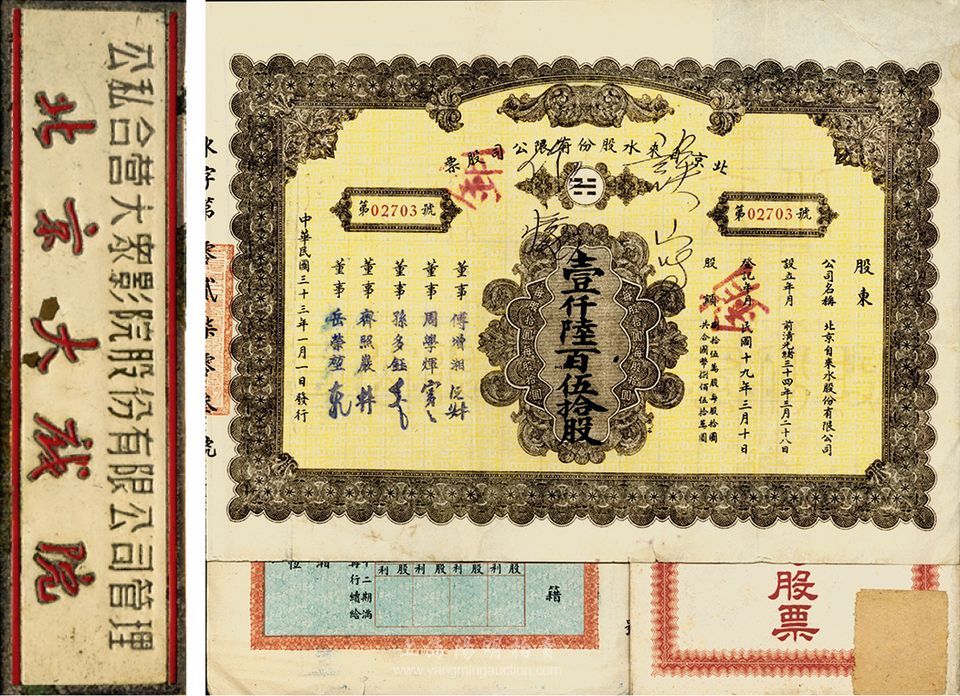 公私合营大眾影院股份有限公司管理
北京大戏院
北京自來水股份有限公司股票
第02703號
第02703號
股東
公司名稱 北京自來水股份有限公司
設立年月 前清光緒三十四年三月二十八日
登記年月 民國十九年三月十日
股額 拾伍萬股每股拾圓
共合國幣捌佰伍拾萬圓
壹仟陸百伍拾股
董事 傅增湘
董事 周學煇
董事 孫多鈺
董事 齊照巖
董事 岳榮堃
中華民國三十三年一月一日發行
利股利股利股利股
二期滿
再行續給
籍
股票
www.yangmingauction.com